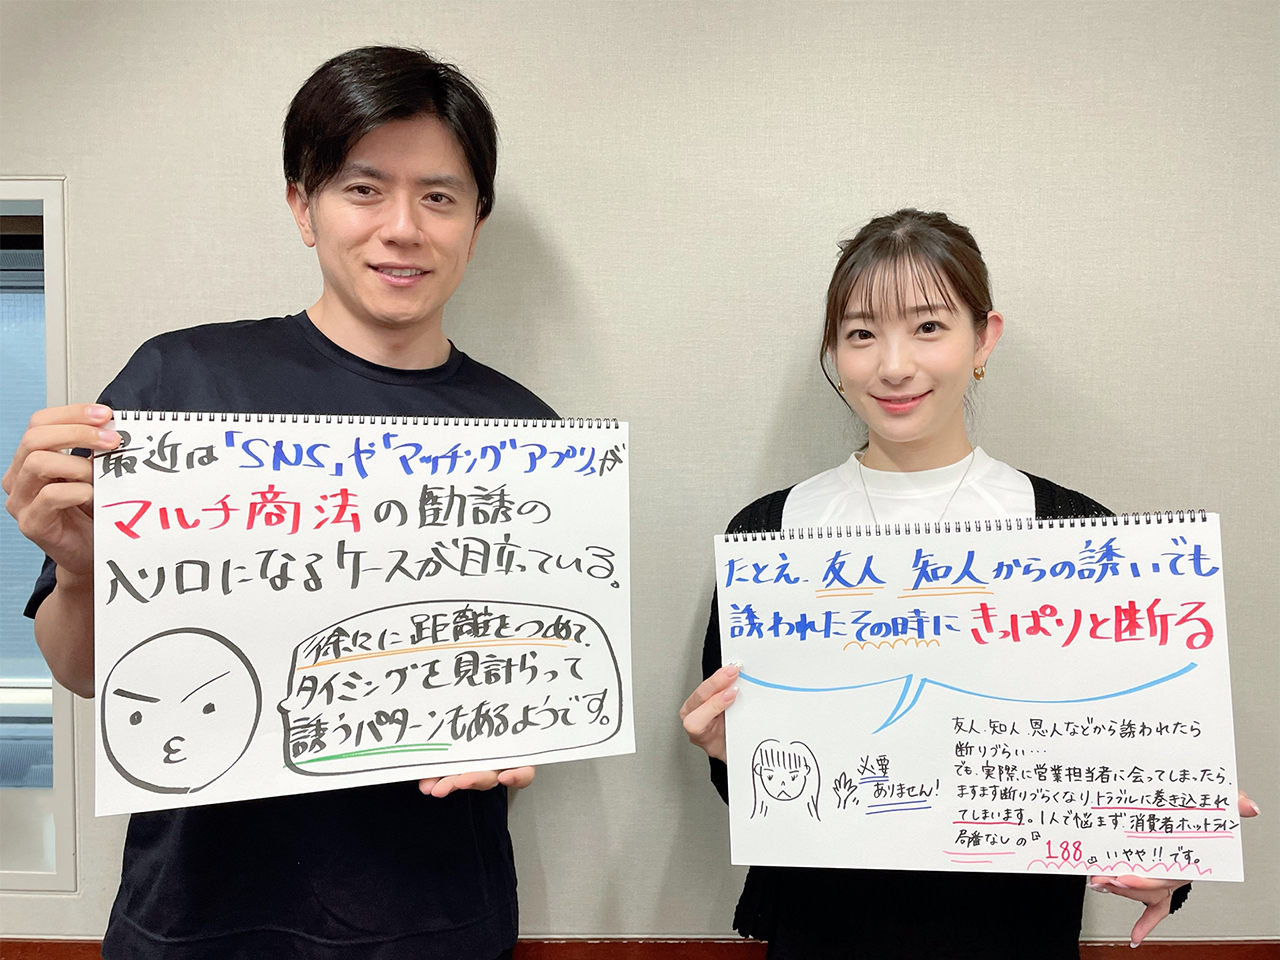 最近は「SNS」や「マッチングアプリ」が
マルチ商法の勧誘の
入り口になるケースが目立っている。
徐々に距離をつめて、
タイミングを見計らって
誘うパターンもあるようです。
たとえ、友人 知人からの誘いでも
誘われたその時にきっぱりと断る
必要
ありません!
友人、知人、恩人などから誘われたら
断りづらい…
でも、実際に営業担当者に会ってしまったら、
ますます断りづらくなり、トラブルに巻き込まれ
てしまいます。1人で悩まず、消費者ホットライン
局番なしの『188』いやや!!です。